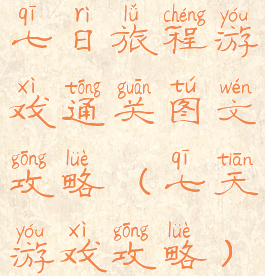 qī rì lǚ chéng yóu
七日旅程游
xì tōng guān tú wén
戏通关图文
gōng lüè qī tiān
攻略（七天
yóu xì gōng lüè
游戏攻略）